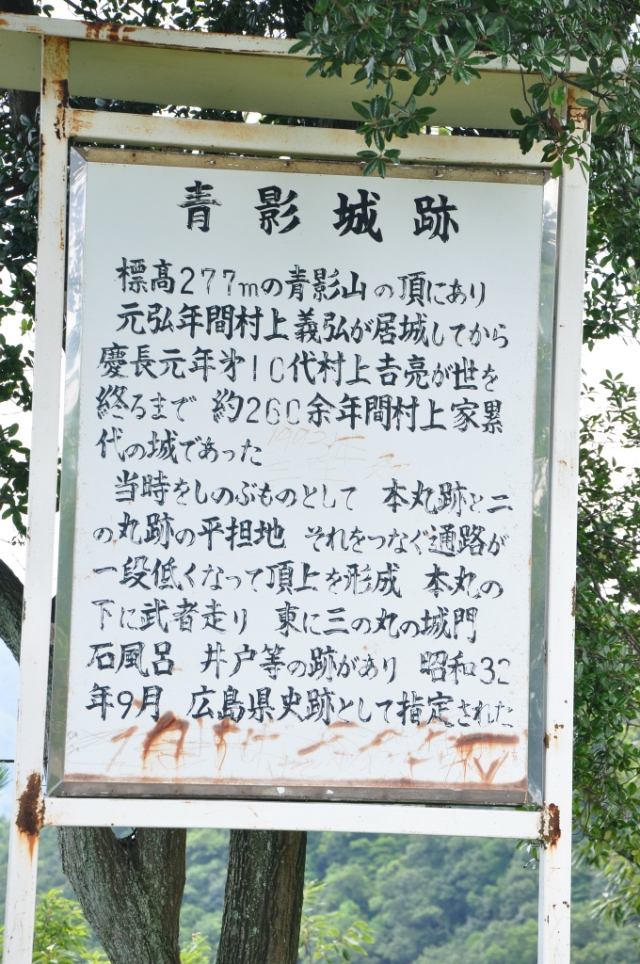 青影城跡
標高277mの青影山の頂にあり
元弘年間村上義弘が居城してから
慶長元年㐧10代村上吉亮が世を
終るまで 約260余年間村上家累
代の城であった
当時をしのぶものとして 本丸跡と二
の丸跡の平担地 それをつなぐ通路が
一段低くなって頂上を形成 本丸の
下に武者走り 東に三の丸の城門
石風呂 井戸等の跡があり 昭和32
年9月 広島県史跡として指定された